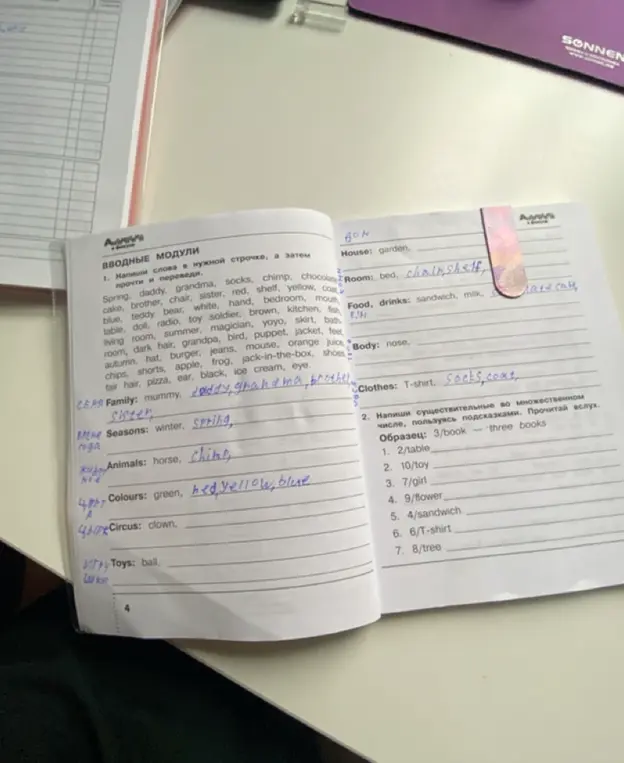 SONNEN
ВВОДНЫЕ МОДУЛИ
1. Напиши слова в нужной строчке, а затем
прочти и переведи.
Spring, daddy, grandma, socks, chimp, chocolate
cake, brother, chair, sister, red, shelf, yellow, coat,
blue, teddy bear, white, hand, bedroom, mouth,
table, doll, radio, toy soldier, brown, kitchen, fish,
living room, summer, magician, yoyo, skirt, bath-
room, dark hair, grandpa, bird, puppet, jacket, feet,
autumn, hat, burger, jeans, mouse, orange juice,
chips, shorts, apple, frog, jack-in-the-box, shoes,
fair hair, pizza, ear, black, ice cream, eye.
Family: mummy, daddy, grandma, brother
sister,
Seasons: winter, spring,
Animals: horse, chimp,
Colours: green, red, yellow, blue
Circus: clown,
Toys: ball,
4
House: garden,
Room: bed, chair, shelf,
Food, drinks: sandwich, milk, cake,
Body: nose,
Clothes: T-shirt, socks, coat,
2. Напиши существительные во множественном
числе, пользуясь подсказками. Прочитай вслух.
Образец: 3/book — three books
1. 2/table
2. 10/toy
3. 7/girl
4. 9/flower
5. 4/sandwich
6. 6/T-shirt
7. 8/tree